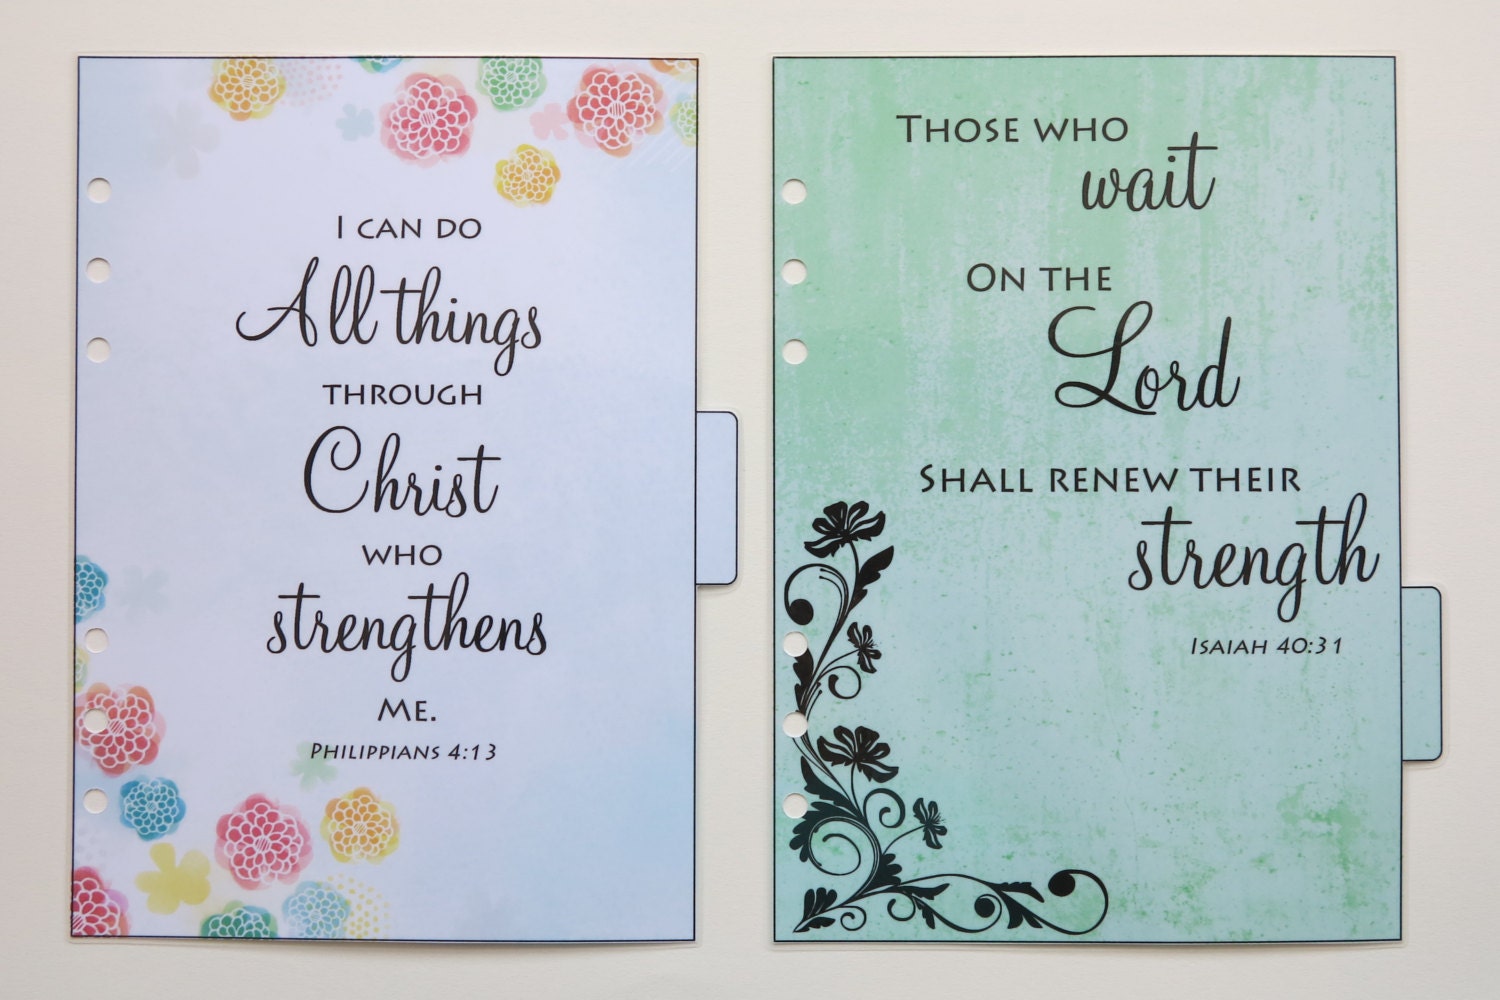 I CAN DO
All things
THROUGH
Christ
WHO
strengthens
ME.
PHILIPPIANS 4:13
THOSE WHO
wait
ON THE
Lord
SHALL RENEW THEIR
strength
ISAIAH 40:31